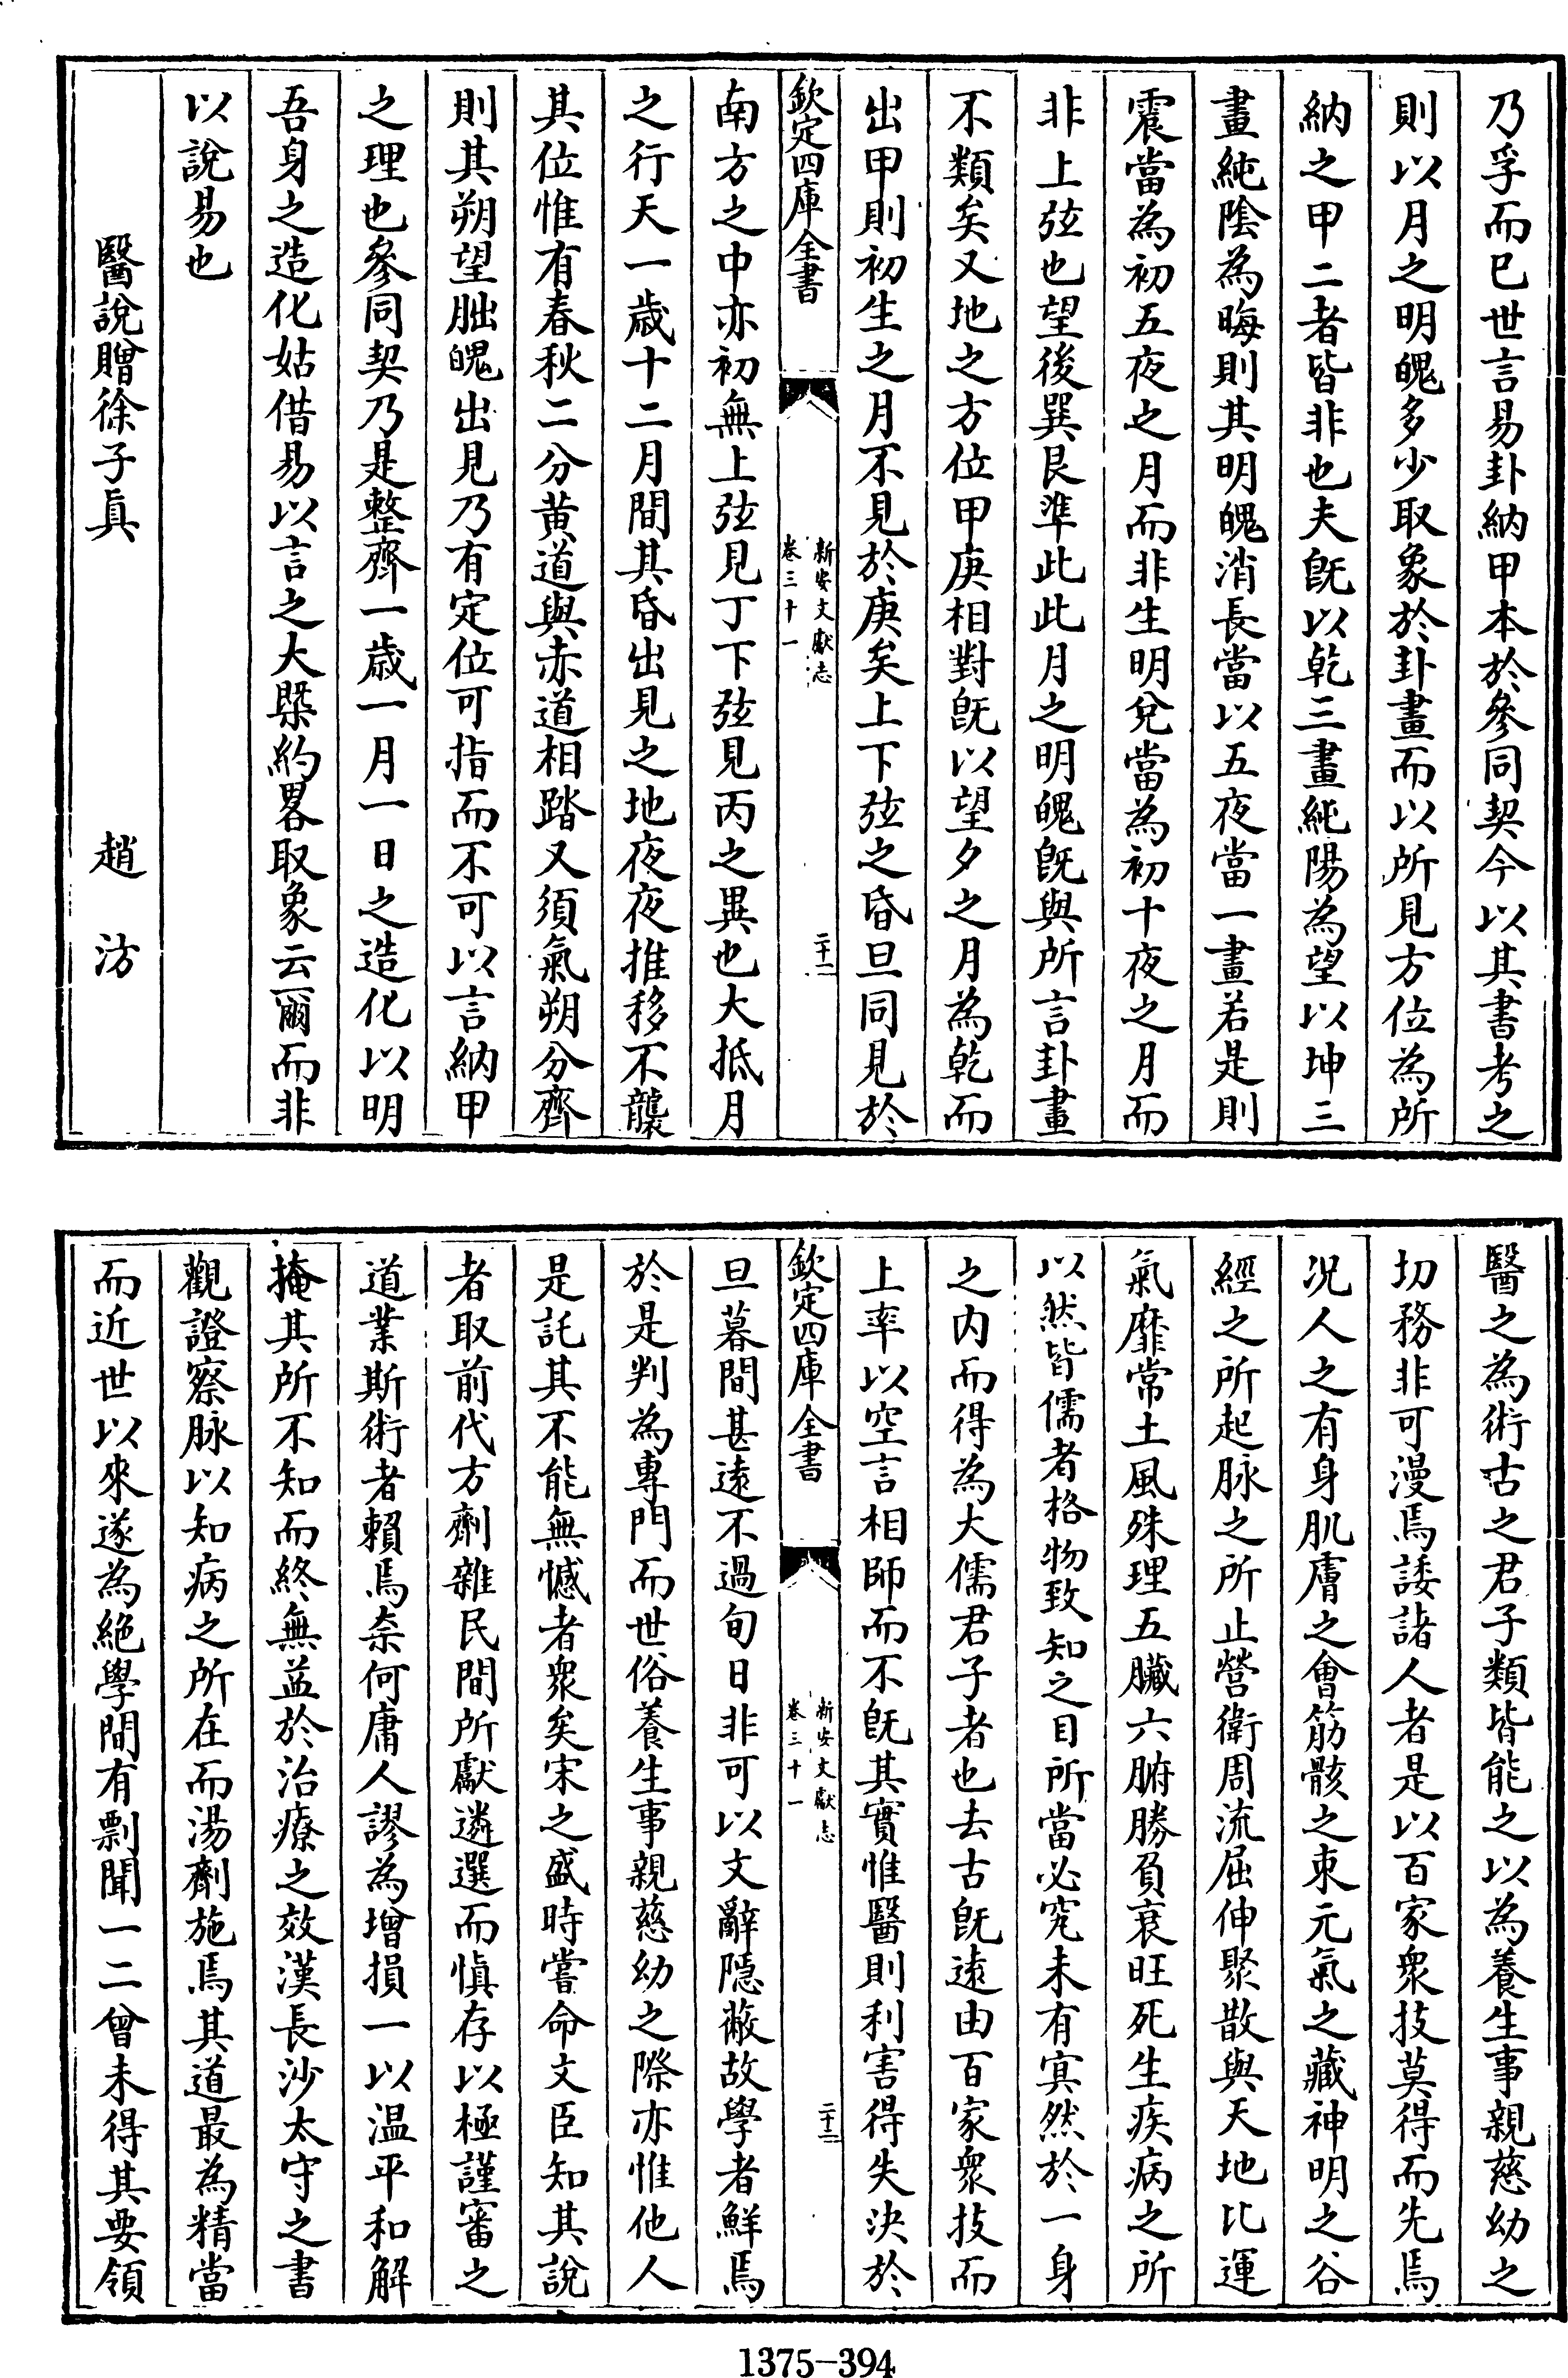 乃孚而已世言易卦納甲本於參同契今以其書考之
則以月之明魄多少取象於卦畫而以所見方位為所
納之甲二者皆非也夫旣以乾三畫純陽為望以坤三
畫純陰為晦則其明魄消長當以五夜當一畫若是則
震當為初五夜之月而非生明兌當為初十夜之月而
非上弦也望後巽艮準此此月之明魄旣與所言卦畫
不類矣又地之方位甲庚相對旣以望夕之月為乾而
出甲則初生之月不見於庚矣上下弦之昏旦同見於
欽定四庫全書
新安文獻志
卷三十一
二十二
南方之中亦初無上弦見丁下弦見丙之異也大抵月
之行天一歲十二月間其昏出見之地夜夜推移不襲
其位惟有春秋二分黃道與赤道相踏又須氣朔分齊
則其朔望朏魄出見乃有定位可指而不可以言納甲
之理也參同契乃是整齊一歲一月一日之造化以明
吾身之造化姑借易以言之大槩約畧取象云爾而非
以說易也
醫說贈徐子眞
趙汸
醫之為術古之君子類皆能之以為養生事親慈幼之
切務非可漫焉諉諸人者是以百家衆技莫得而先焉
况人之有身肌膚之會筋骸之束元氣之藏神明之谷
經之所起脉之所止營衛周流屈伸聚散與天地比運
氣靡常土風殊理五臟六腑勝負衰旺死生疾病之所
以然皆儒者格物致知之目所當必究未有寘然於一身
之内而得為大儒君子者也去古旣遠由百家衆技而
上率以空言相師而不旣其實惟醫則利害得失決於
欽定四庫全書
新安文獻志
卷三十一
二十三
旦暮間甚遠不過旬日非可以文辭隱蔽故學者鮮焉
於是判為專門而世俗養生事親慈幼之際亦惟他人
是託其不能無憾者衆矣宋之盛時嘗命文臣知其說
者取前代方劑雜民間所獻遴選而愼存以極謹審之
道業斯術者賴焉奈何庸人謬為增損一以温平和解
掩其所不知而終無益於治療之效漢長沙太守之書
觀證察脉以知病之所在而湯劑施焉其道最為精當
而近世以來遂為絶學間有剽聞一二曾未得其要領
1375-394